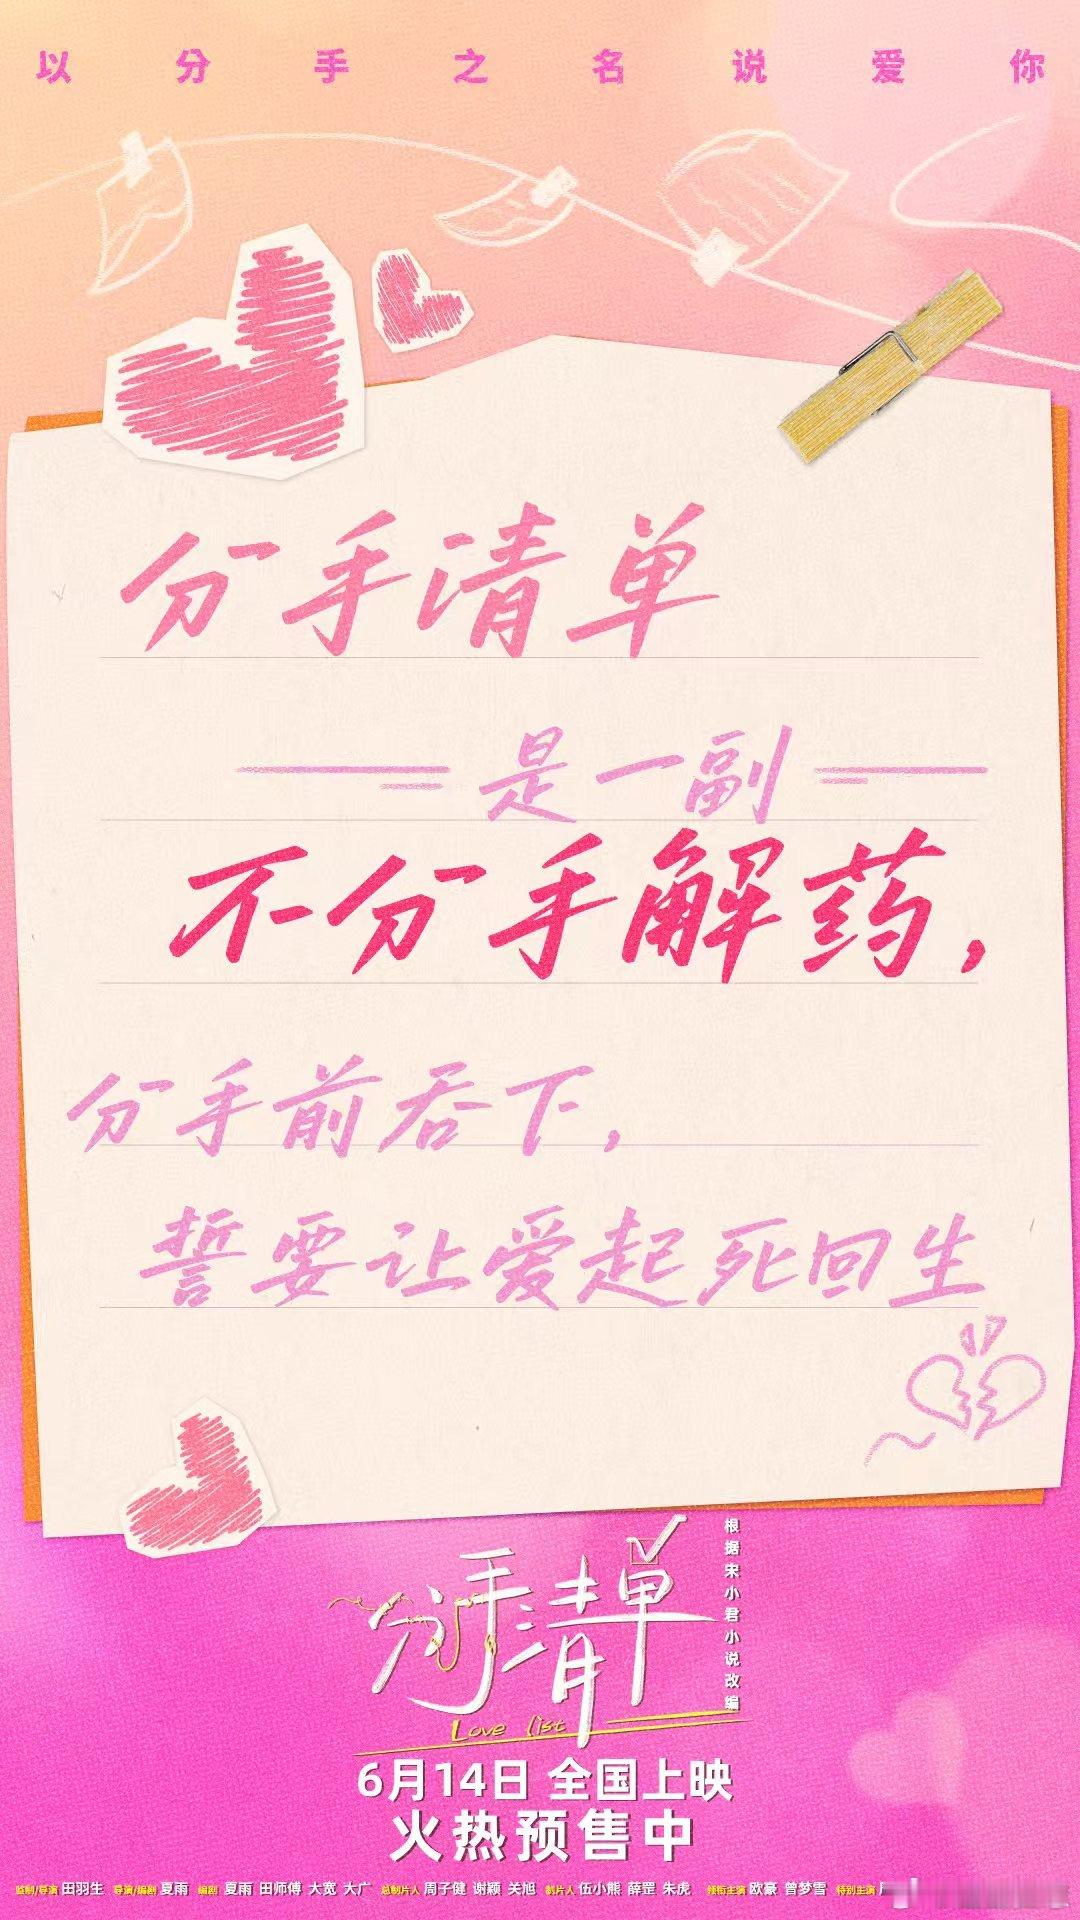 以分手之名说爱你
分手清单
是一副
不分手解药，
分手前吞下，
誓要让爱起死回生
分手清单
根据宋小君小说改编
Love list
6月14日 全国上映
火热预售中
监制/导演 田羽生 导演/编剧 夏雨 编剧 夏雨 田师傅 大宽 大广 总制片人 周子健 谢颖 关旭 制片人 伍小熊 薛罡 朱虎 领衔主演 欧豪 曾梦雪 特别主演